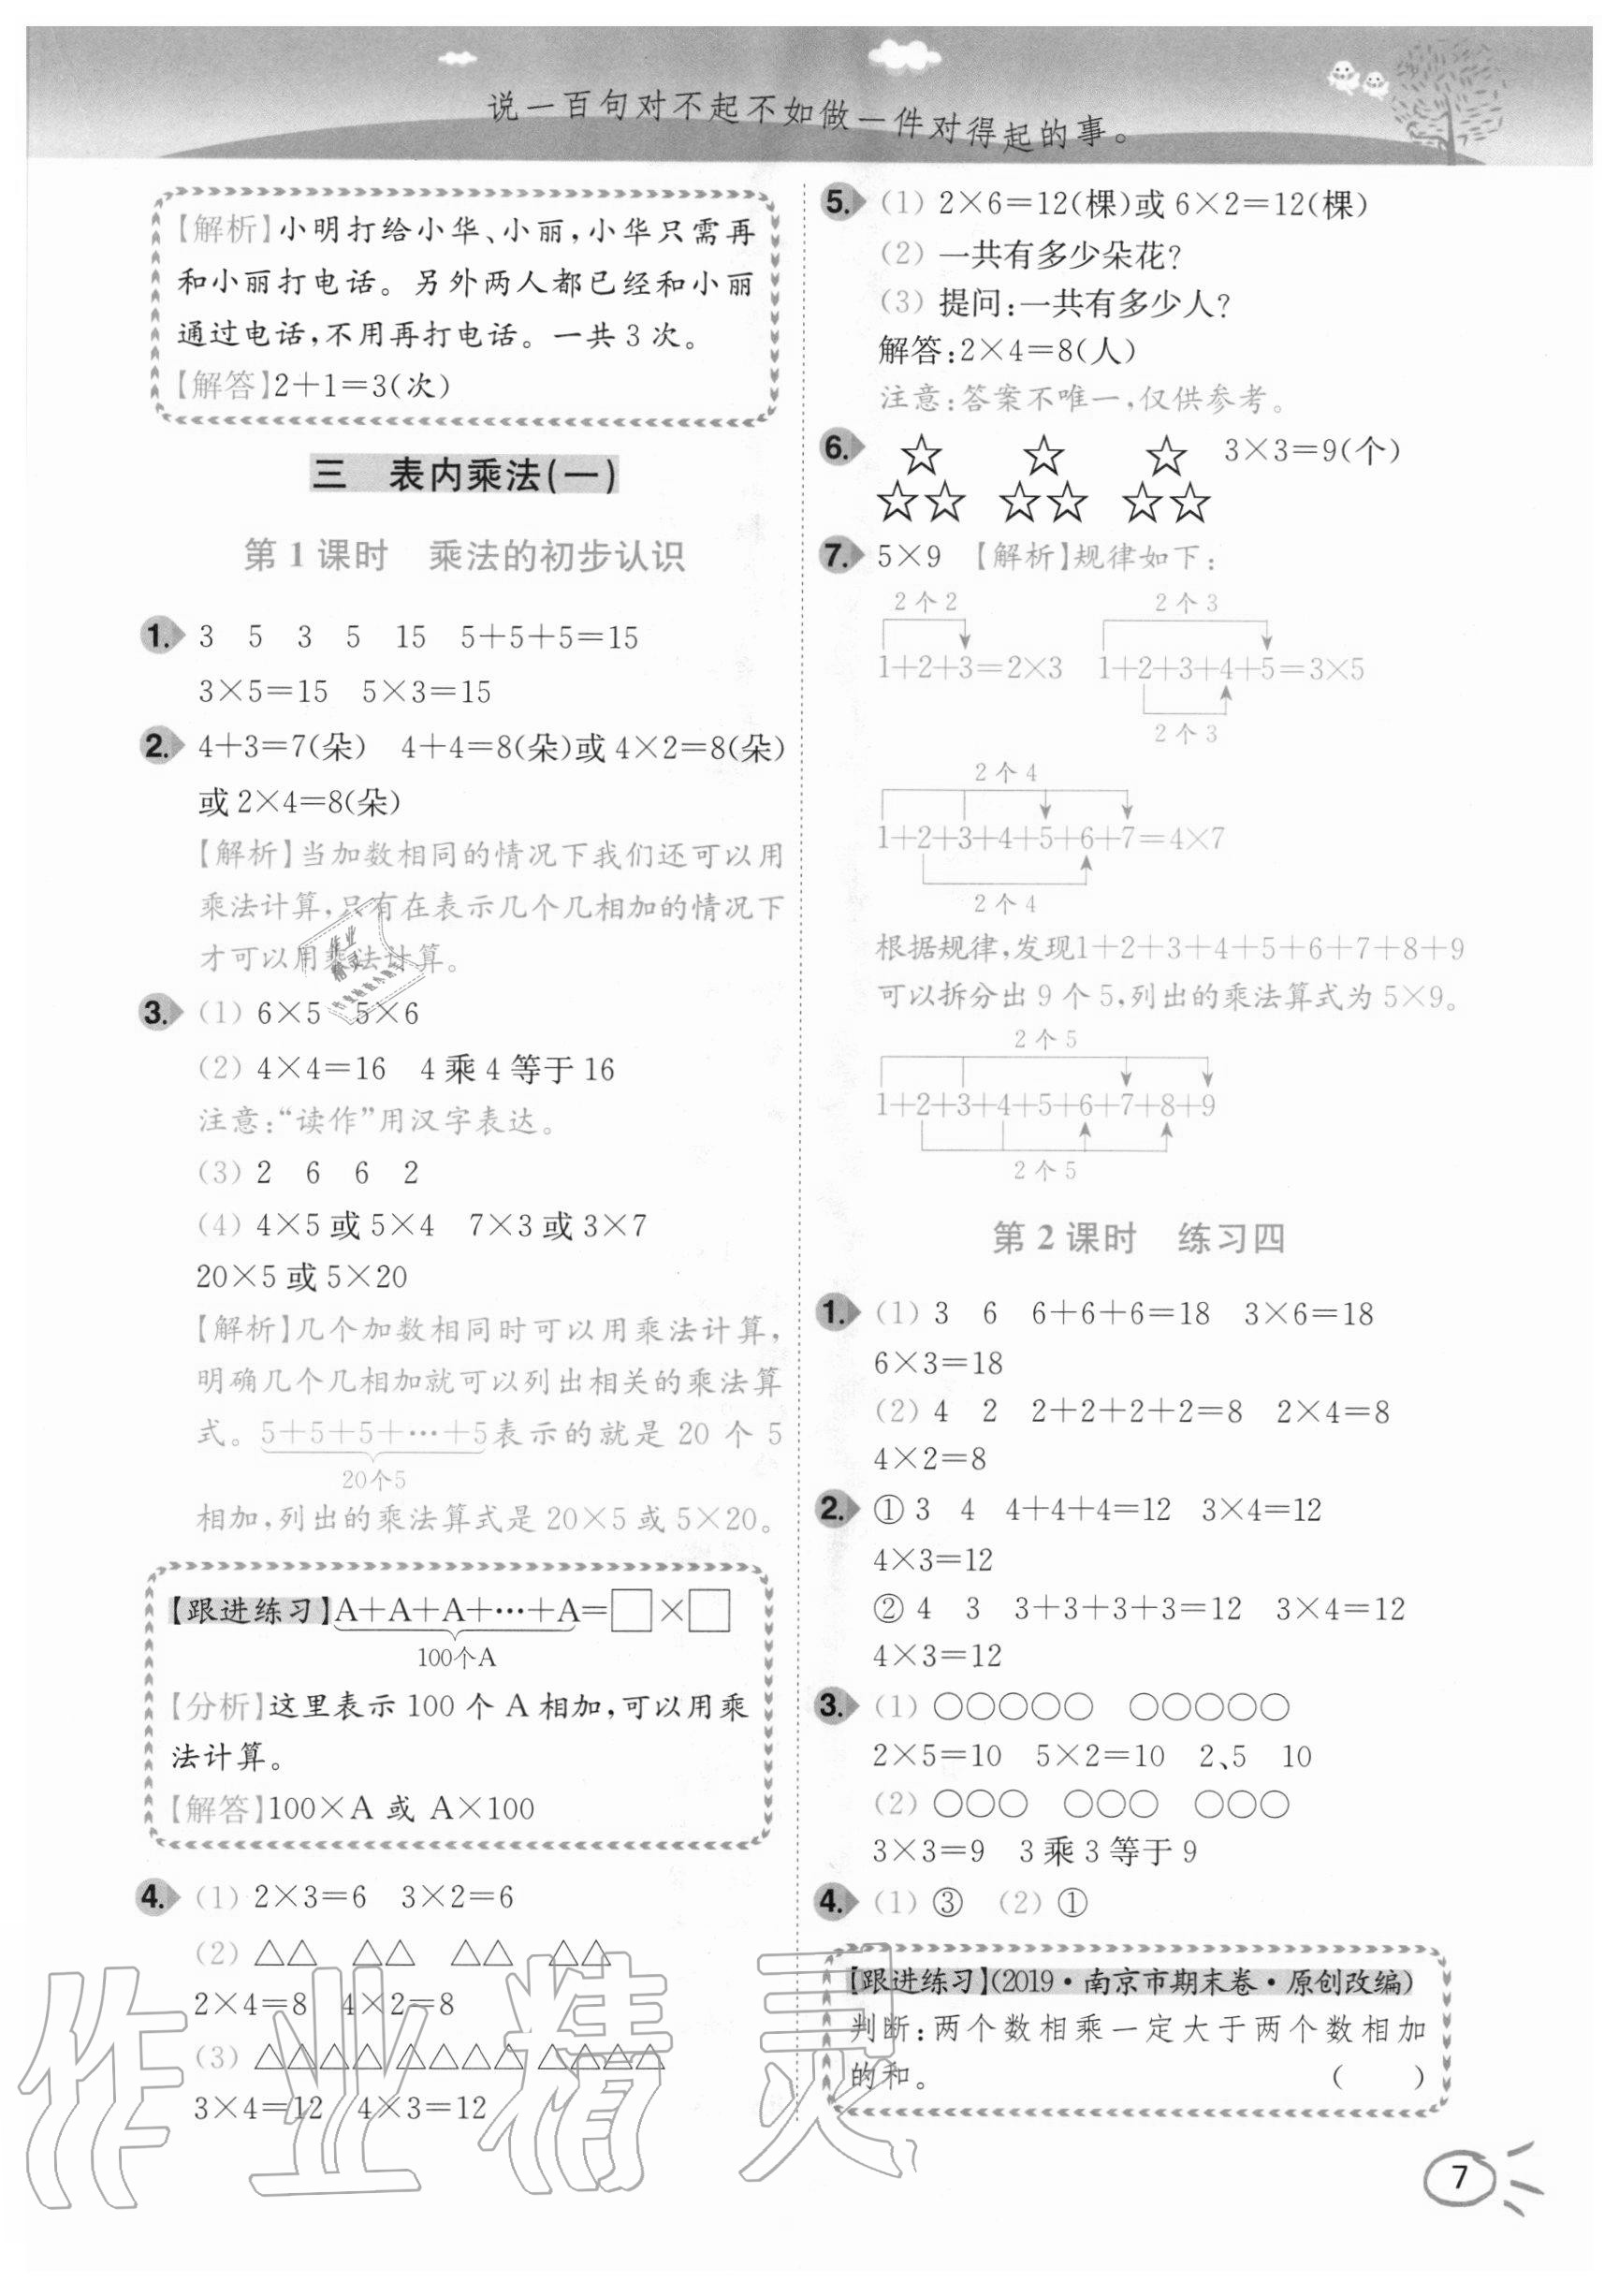 说一百句对不起不如做一件对得起的事。
【解析】小明打给小华、小丽,小华只需再
和小丽打电话。另外两人都已经和小丽
通过电话,不用再打电话。一共3次。
【解答】2+1=3(次)
三 表内乘法(一)
第1课时 乘法的初步认识
1. 3 5 3 5 15 5+5+5=15
3×5=15 5×3=15
2. 4+3=7(朵) 4+4=8(朵)或4×2=8(朵)
或2×4=8(朵)
【解析】当加数相同的情况下我们还可以用
乘法计算,只有在表示几个几相加的情况下
才可以用乘法计算。
3. (1) 6×5 5×6
(2) 4×4=16 4乘4等于16
注意:“读作”用汉字表达。
(3) 2 6 6 2
(4) 4×5或5×4 7×3或3×7
20×5或5×20
【解析】几个加数相同时可以用乘法计算,
明确几个几相加就可以列出相关的乘法算
式。5+5+5+…+5表示的就是20个5
20个5
相加,列出的乘法算式是20×5或5×20。
【跟进练习】A+A+A+…+A=□×□
100个A
【分析】这里表示100个A相加,可以用乘
法计算。
【解答】100×A或 A×100
4. (1) 2×3=6 3×2=6
(2) △△ △△ △△ △△
2×4=8 4×2=8
(3) △△△△ △△△△ △△△△
3×4=12 4×3=12
5. (1) 2×6=12(棵)或6×2=12(棵)
(2) 一共有多少朵花?
(3) 提问:一共有多少人?
解答:2×4=8(人)
注意:答案不唯一,仅供参考。
6. ☆ ☆ ☆ 3×3=9(个)
☆☆ ☆☆ ☆☆
7. 5×9 【解析】规律如下:
2个2 2个3
1+2+3=2×3 1+2+3+4+5=3×5
2个3
2个4
1+2+3+4+5+6+7=4×7
2个4
根据规律,发现1+2+3+4+5+6+7+8+9
可以拆分出9个5,列出的乘法算式为5×9。
2个5
1+2+3+4+5+6+7+8+9
2个5
第2课时 练习四
1. (1) 3 6 6+6+6=18 3×6=18
6×3=18
(2) 4 2 2+2+2+2=8 2×4=8
4×2=8
2. ①3 4 4+4+4=12 3×4=12
4×3=12
②4 3 3+3+3+3=12 3×4=12
4×3=12
3. (1) ○○○○○ ○○○○○
2×5=10 5×2=10 2、5 10
(2) ○○○ ○○○ ○○○
3×3=9 3乘3等于9
4. (1) ③ (2) ①
【跟进练习】(2019·南京市期末卷·原创改编)
判断:两个数相乘一定大于两个数相加
的和。 ( )
7
作业精灵
作业
精灵